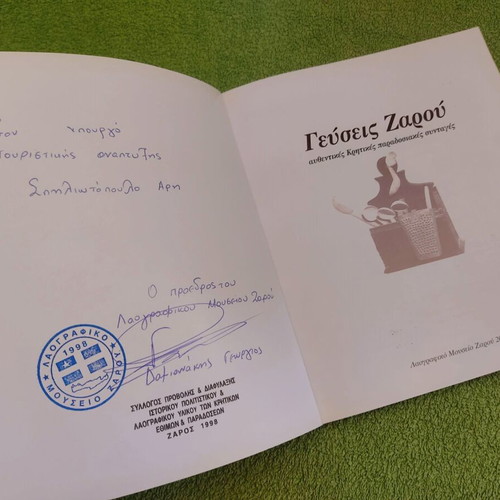 τον Υπουργό
τουριστικής αναπτυξης
Σπηλιωτόπουλο Αρη
Ο προεδρος του
Λαογραφικου Μουσειου Ζαρού
Δαμιανάκης Γεώργιος
ΛΑΟΓΡΑΦΙΚΟ
1998
ΜΟΥΣΕΙΟ ΖΑΡΟΥ
ΣΥΛΛΟΓΟΣ ΠΡΟΒΟΛΗΣ & ΔΙΑΦΥΛΑΞΗΣ
ΙΣΤΟΡΙΚΟΥ ΠΟΛΙΤΙΣΤΙΚΟΥ &
ΛΑΟΓΡΑΦΙΚΟΥ ΥΛΙΚΟΥ ΤΩΝ ΚΡΗΤΙΚΩΝ
ΕΘΙΜΩΝ & ΠΑΡΑΔΟΣΕΩΝ
ΖΑΡΟΣ 1998
Γεύσεις Ζαρού
αυθεντικές Κρητικές παραδοσιακές συνταγές
Λαογραφικό Μουσείο Ζαρού 20